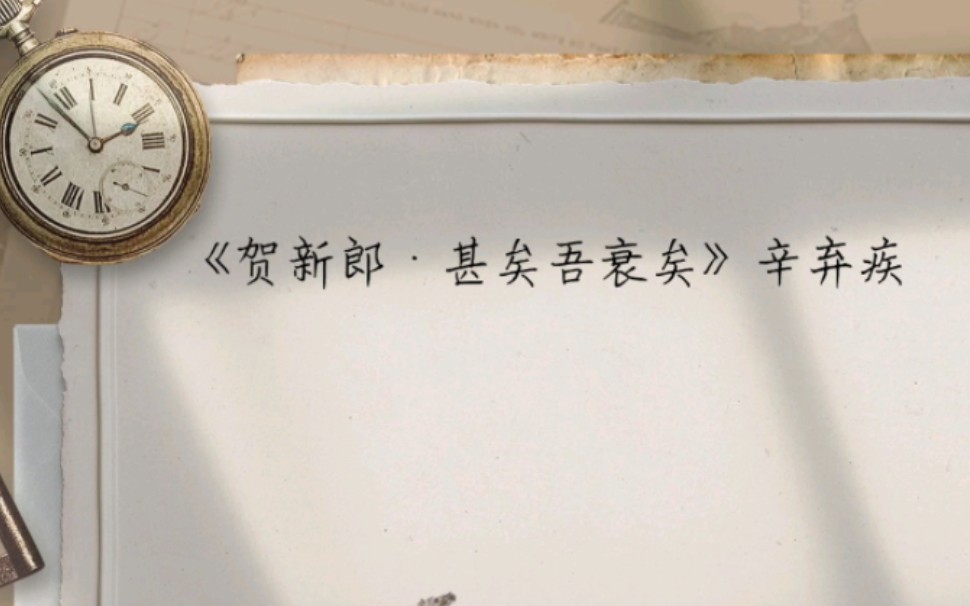 《贺新郎·甚矣吾衰矣》辛弃疾